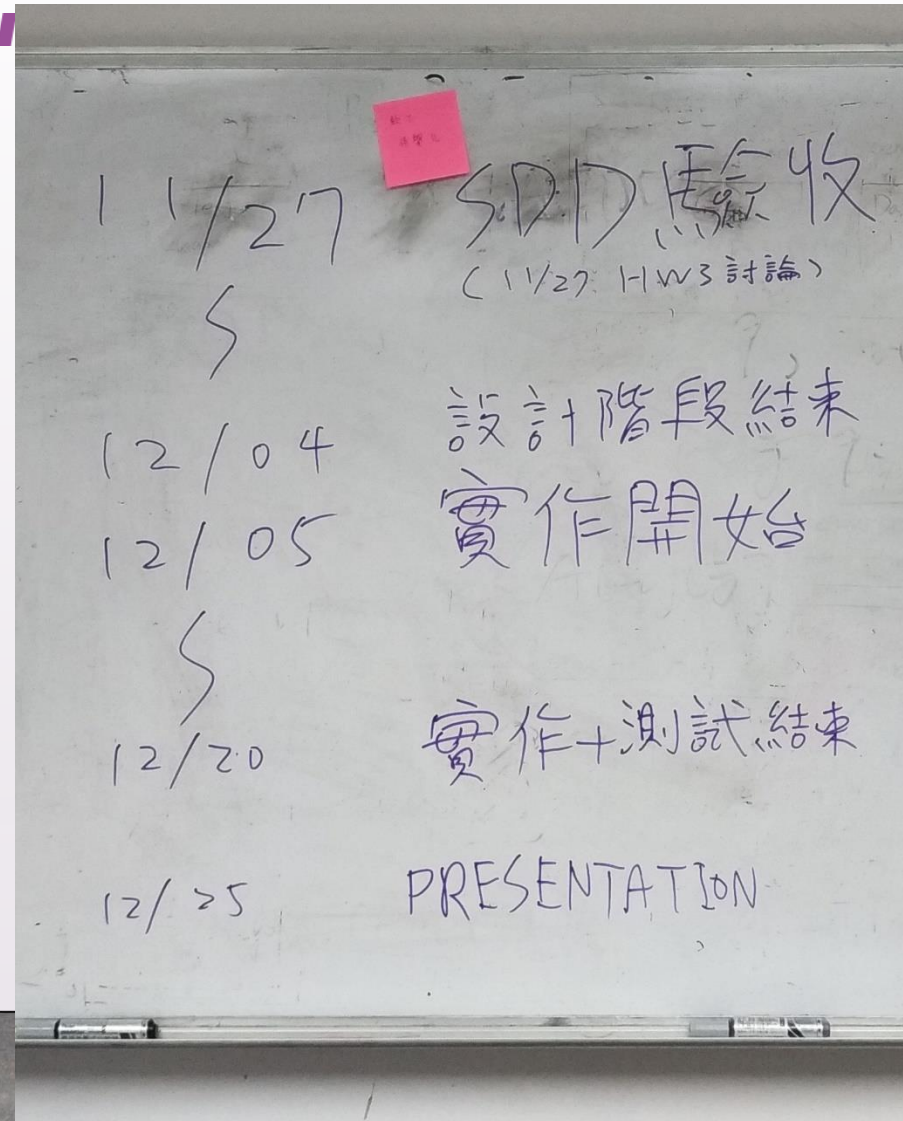 11/27 SDD驗收
(11/27 HW3討論)
12/04 設計階段結束
12/05 實作開始
12/20 實作+測試結束
12/25 PRESENTATION